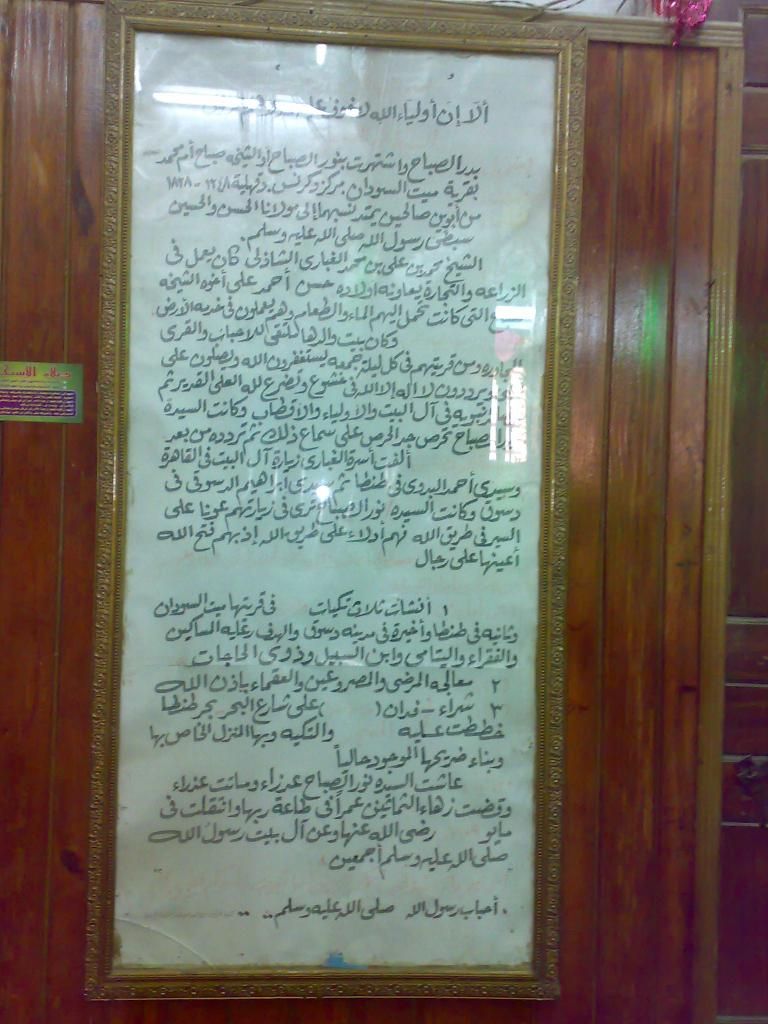 ألا إن أولياء الله لا خوف
بدر الصباح واشتهرت بنور الصباح أو الشيخه صباح أم محمد
بقرية ميت السودان مركز دكرنس. دقهلية ١٢٤٨ - ١٨٢٨
من أبوين صالحين يمتد نسبهما إلى مولانا الحسن والحسين
سبطى رسول الله صلى الله عليه وسلم.
الشيخ محمد بن على بن محمد الغبارى الشاذلى كان يعمل فى
الزراعه والتجارة يعاونه اولاده حسن أحمد على أخوه الشيخه
التى كانت تحمل إليهم الماء والطعام وهم يعملون فى خدمه الأرض
وكان بيت والدها ملتقى للاحباب والقرى
المجاوره ومن قريتهم فى كل ليلة جمعه يستغفرون الله ويصلون على
يرددون لا اله إلا الله فى خشوع وتضرع لله العلى القدير ثم
فى آل البيت والاولياء والاقطاب وكانت السيدة
الصباح تحرص جد الحرص على سماع ذلك ثم تردده من بعد
ألفت أسرة الغبارى زيارة آل البيت فى القاهرة
وسيدي أحمد البدوى فى طنطا ثم سيدى ابراهيم الدسوقى فى
دسوق وكانت السيده نور الصباح ترى فى زيارتهم عونا على
السير فى طريق الله فهم أدلاء على طريق الله إذ بهم فتح الله
أعينها على رجال
١ أنشات ثلاث تكيات فى قريتها ميت السودان
وثانيه فى طنطا وأخيرة فى مدينه دسوق والهدف رعايه المساكين
والفقراء واليتامى وابن السبيل وذوى الحاجات
٢ معالجه المرضى والمصروعين والعقماء باذن الله
٣ شراء - فدان ( ) على شارع البحر بحر طنطا
خططت عليه والتكيه وبها المنزل الخاص بها
وبناء ضريحها الموجود حالياً
عاشت السيده نور الصباح عذراء وماتت عذراء
وقضت زهاء الثمانين عمراً فى طاعة ربها وانتقلت فى
مايو رضى الله عنها وعن آل بيت رسول الله
صلى الله عليه وسلم أجمعين
. أحباب رسول الله صلى الله عليه وسلم ..